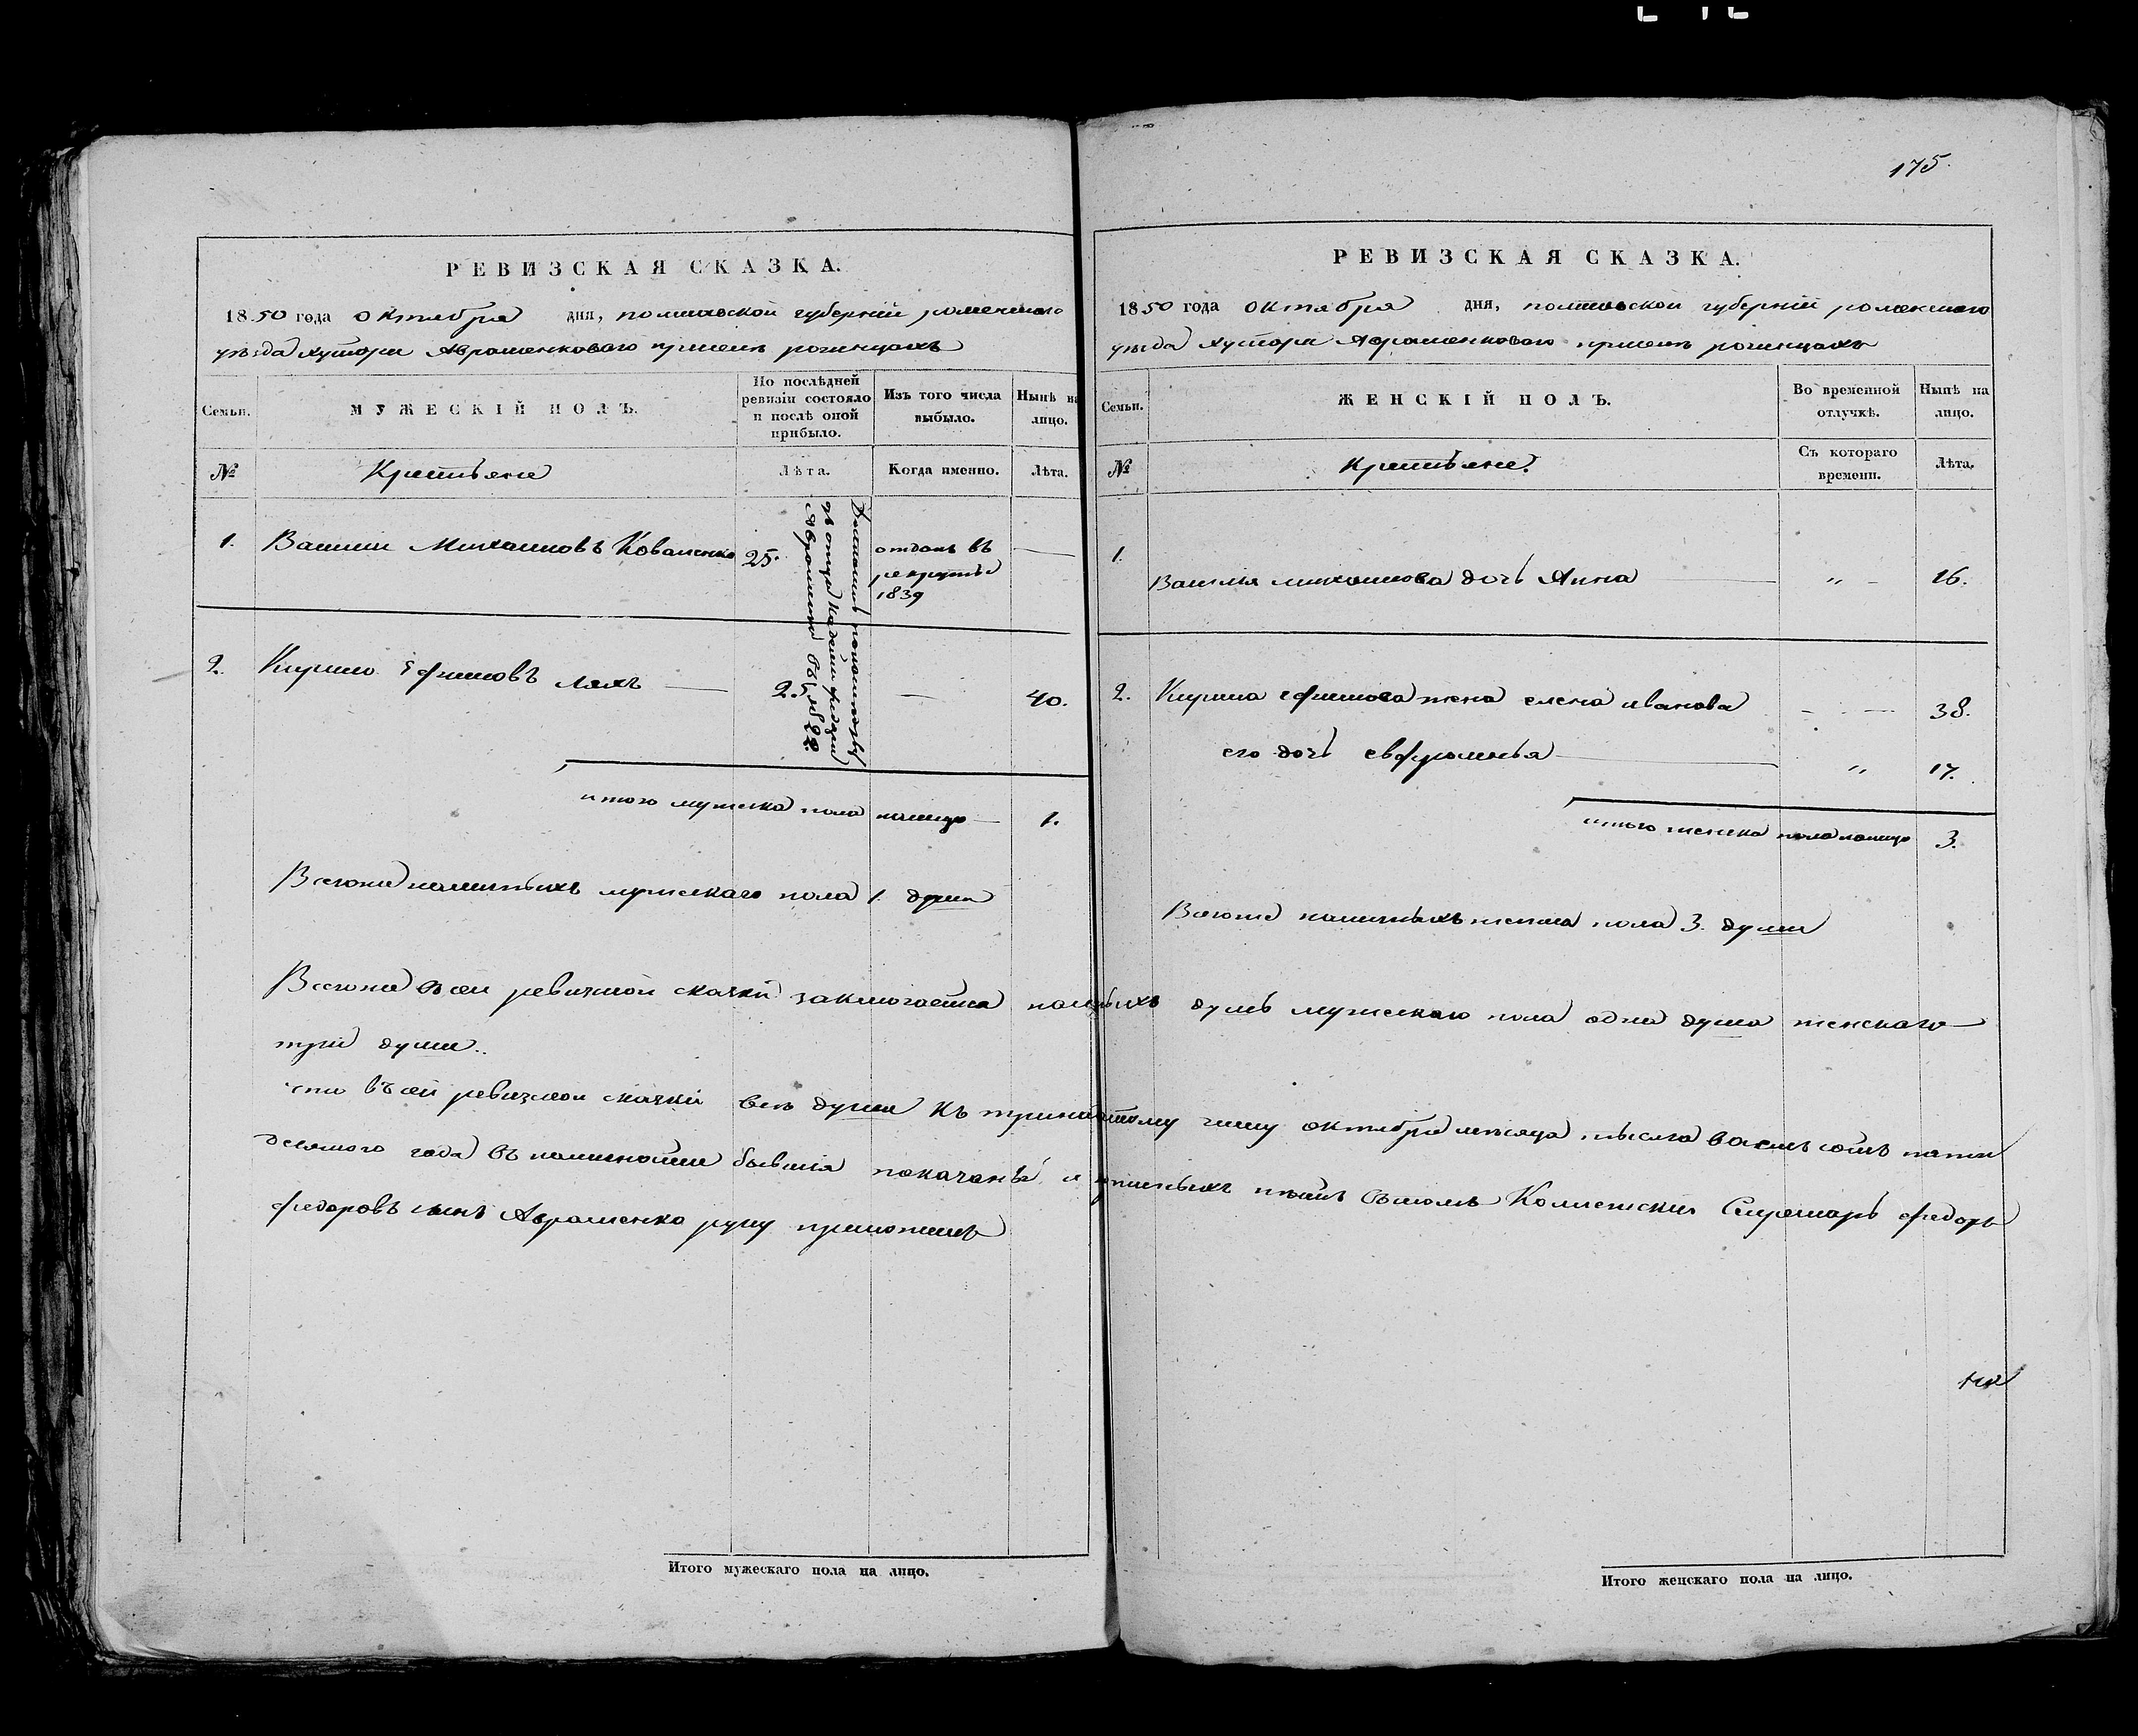 175.
РЕВИЗСКАЯ СКАЗКА.
1850 года Октября дня, полтавской губерніи роменского
уѣзда хутори Авраменкового приселѣ рогинцахъ
Семьи. МУЖЕСКІЙ ПОЛЪ. По послѣдней ревизіи состояло и послѣ оной прибыло. Изъ того числа выбыло. Нынѣ на лицо.
№ Крестьяне Лѣта. Когда именно. Лѣта.
1. Василий Михайловъ Коваленко 25. отданъ въ рекруты 1839 —
2. Кирило Ефимовъ Ляхъ — 25. — 40.
итого мужеска пола налицо — 1.
Всегоже наличныхъ мужескаго пола 1. душа
РЕВИЗСКАЯ СКАЗКА.
1850 года Октября дня, полтавской губерній роменского
уѣзда хутори Авраменкового приселѣ рогинцахъ
Семьи. ЖЕНСКІЙ ПОЛЪ. Во временной отлучкѣ. Нынѣ на лицо.
№ Крестьяне. Съ котораго времени. Лѣта.
1. Василия михаилова дочь Анна — " — 16.
2. Кирила ефимова жена елена иванова — 38.
его дочь евфросинья — " 17.
итого женска пола налицо 3.
Всегоже наличныхъ женска пола 3. души
Всегоже в сей ревизской сказки заключается наличныхъ душъ мужескаго пола одна душа женскаго —
три души..
что въ сей ревизской сказки всѣ души къ числу октября месяца тысяча восемъ сотъ пять
десятого года въ наличности бывшія показаны и нѣтъ въ томъ Колежский Секретарь федоръ
федоровъ сынъ Авраменко руку приложилъ
Итого мужескаго пола на лицо.
Итого женскаго пола на лицо.